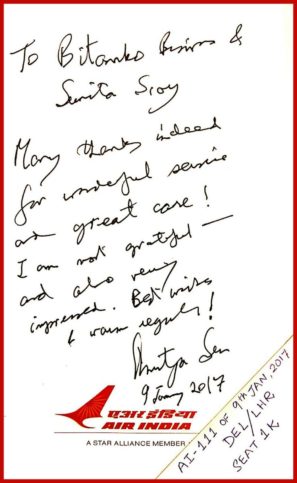 To Bitanko Biswas &
Sunita Sroy
Many thanks indeed
for wonderful service
and great care!
I am not grateful —
and also very
impressed. Best wishes
& warm regards!
Amartya Sen
9 January 2017
एअर इंडिया
AIR INDIA
A STAR ALLIANCE MEMBER
AI-111 OF 9TH JAN, 2017
DEL/LHR
SEAT 1K